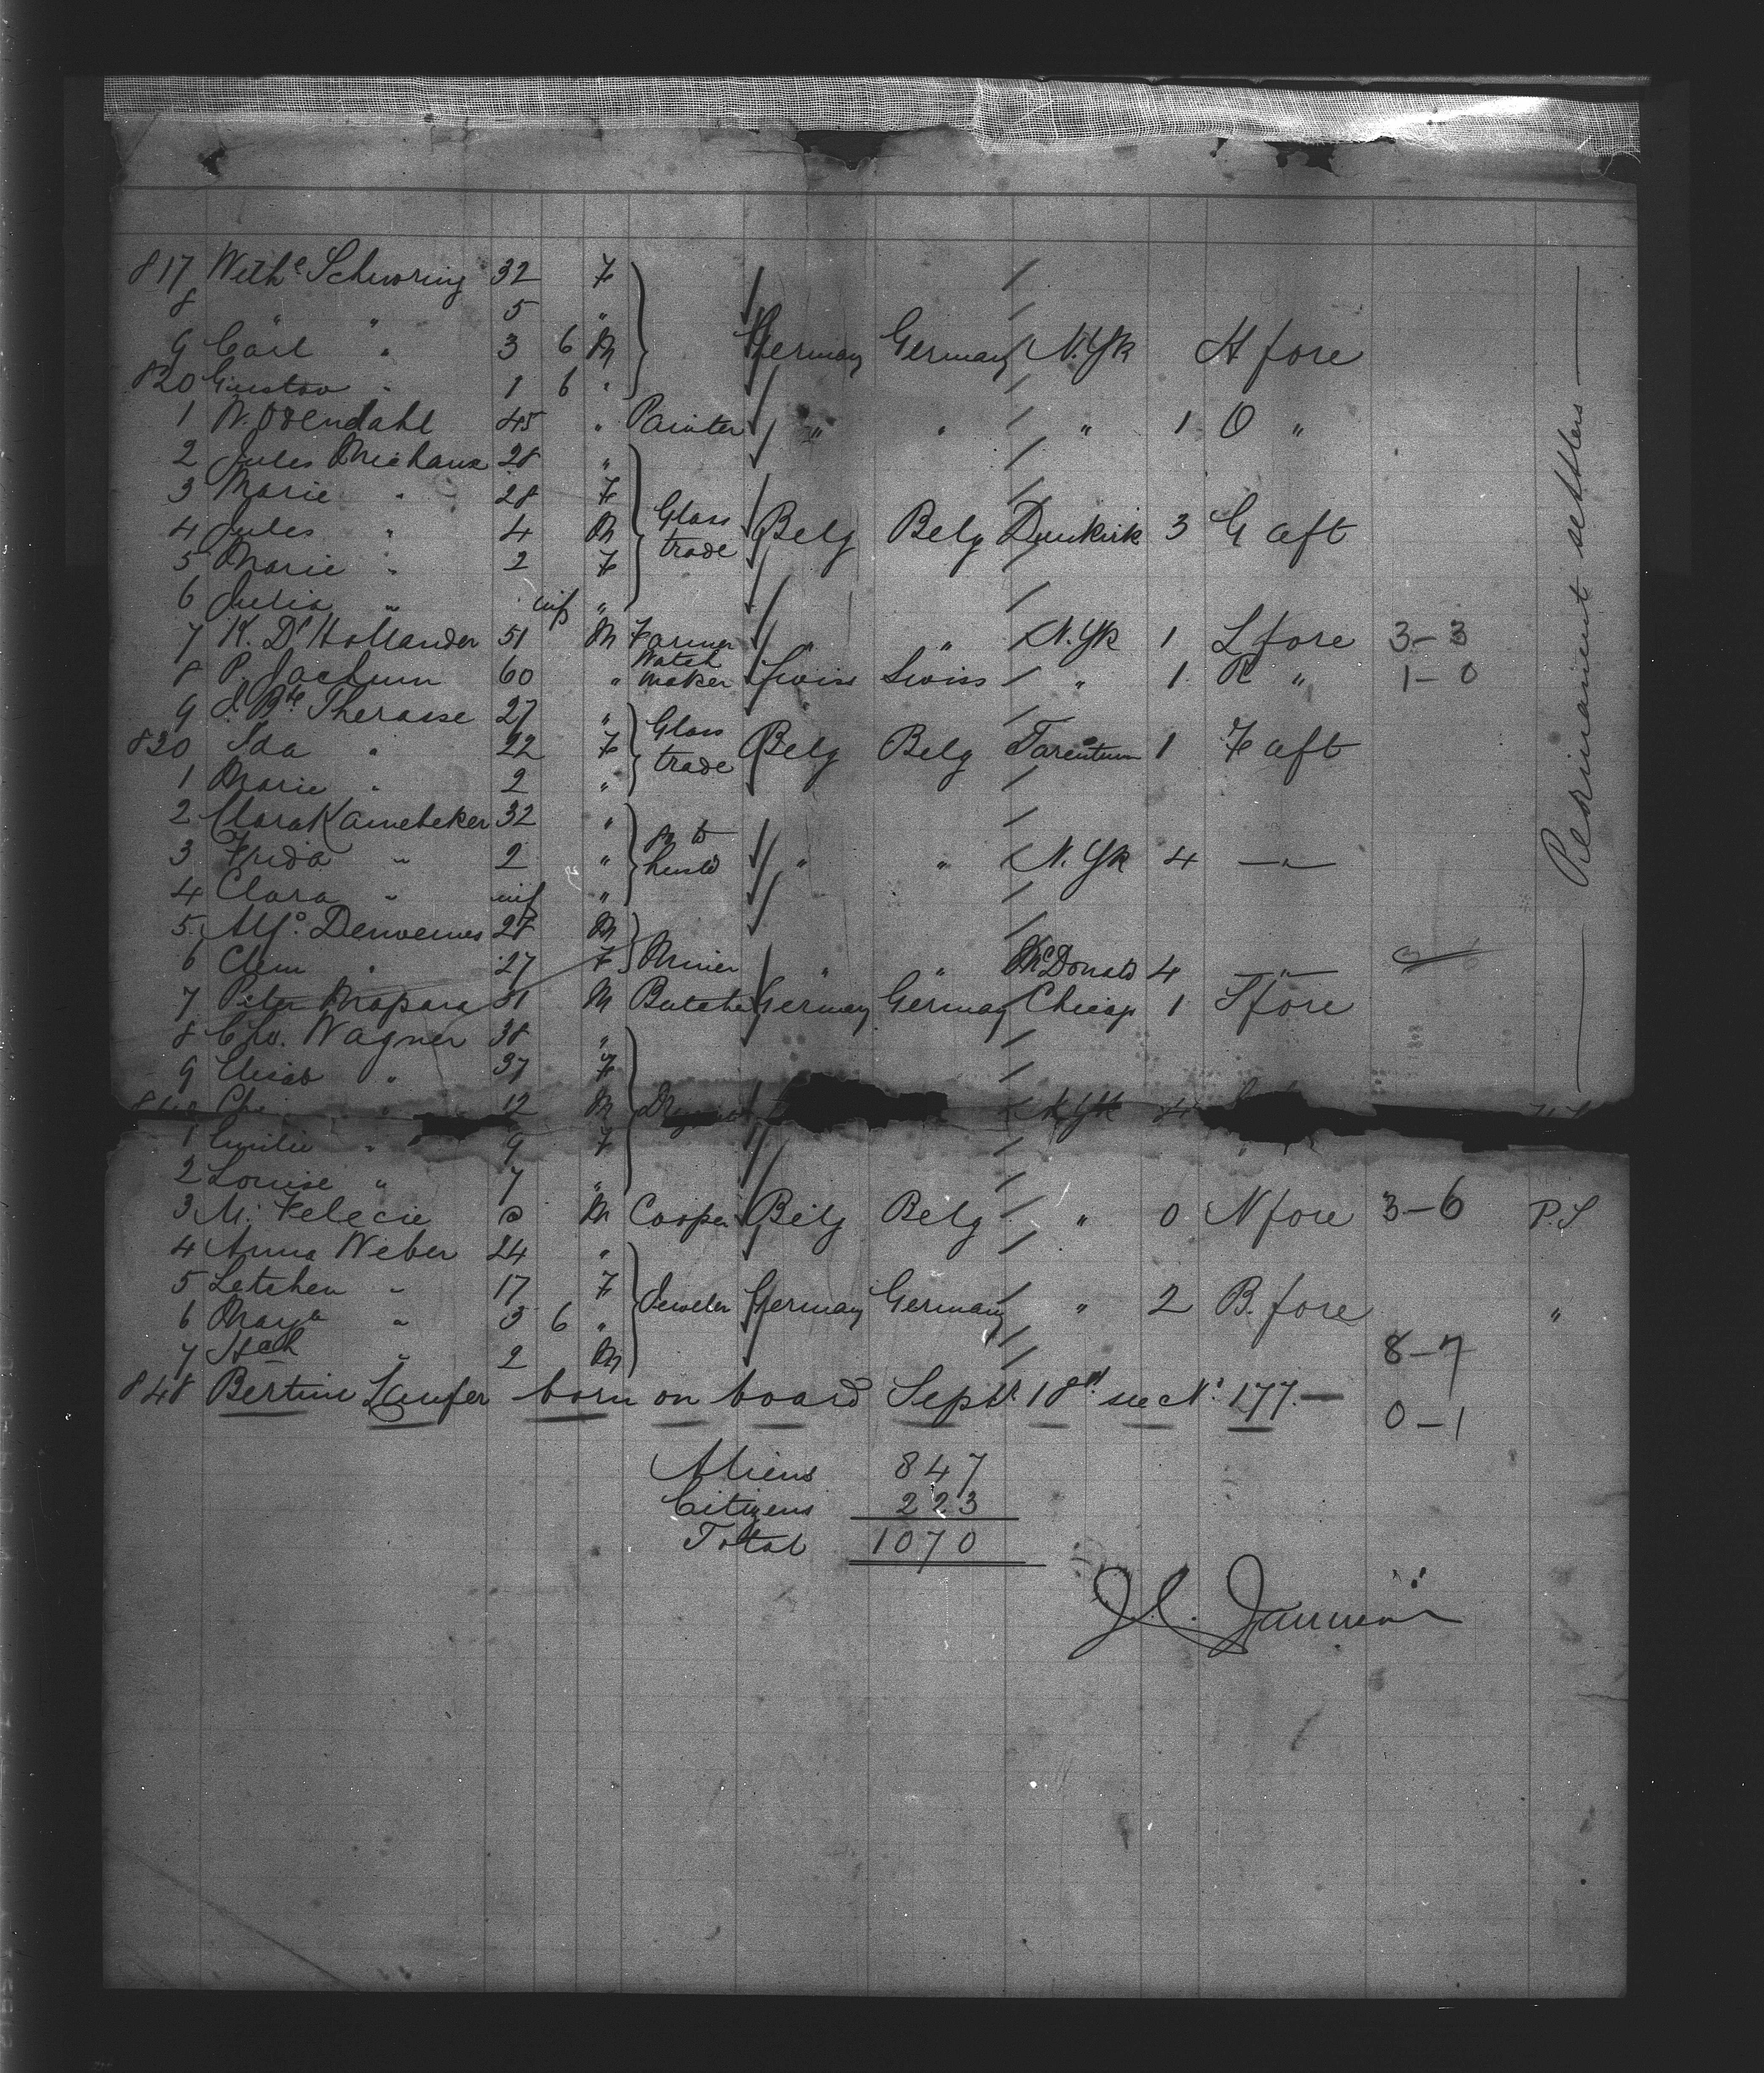 817 Wilhe Schworing 32 F
8 " " 5 "
9 Carl " 3 6 M Germany Germany N.Yk H fore
820 Gustav " 1 6 "
1 W. Ovendahl 45 " Painter " " " 1 O "
2 Jules Michaux 28 "
3 Marie " 28 F
4 Jules " 4 M Glass trade Belg Belg Dunkirk 3 G aft
5 Marie " 2 F
6 Julia " inf "
7 K. De Hollander 51 M Farmer " " N.Yk 1 L fore 3-3
8 P. Jachum 60 " Watch maker Swiss Swiss " 1 R " 1-0
9 J. Bte Therasse 27 "
830 Ida " 22 F Glass trade Belg Belg Tarentum 1 F aft
1 Marie " 2 "
2 Clara Kamebeker 32 "
3 Frida " 2 " to husbd " " N.Yk 4 — " —
4 Clara " inf "
5 Alf. 28 M
6 Clem " 27 F Miner " " McDonald 4 — " —
7 Peter Mapara 31 M Butcher Germany Germany Chicago 1 S fore
8 Chr. Wagner 38 "
9 Elisab " 37 F
840 Chr " 12 M N.Yk 4
1 Emilie " 9 F
2 Louise " 7 "
3 M. Felecie 0 M Cooper Belg Belg " 0 N fore 3-6 P.S
4 Anna Weber 24 "
5 Letchen " 17 F Jeweler Germany Germany " 2 B. fore "
6 Marga " 3 6 "
7 " 2 M 8-7
848 Bertine Laufer born on board Sept. 18th see No. 177.— 0-1
Aliens 847
Citizens 223
Total 1070
Permanent settlers